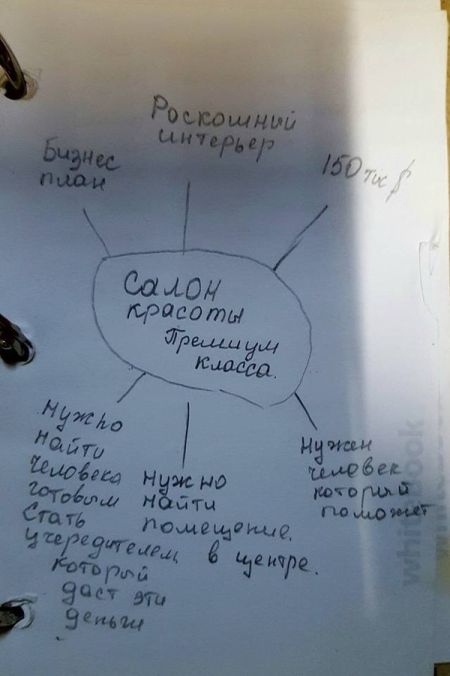 Роскошный
интерьер
Бизнес
план
150 тыс $
Салон
красоты
Премиум
класса.
Нужно
найти
человека
готовым
стать
учередителем,
который
даст эти
деньги
Нужно
найти
помещение.
в центре.
Нужен
человек
который
поможет
white book